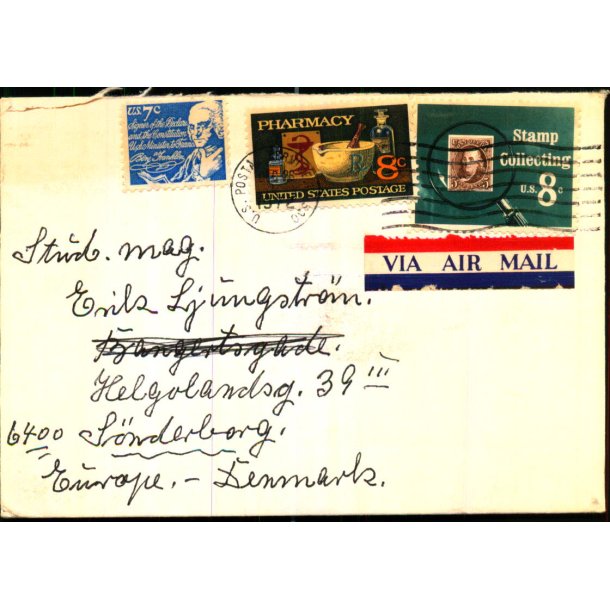 U.S. 7c
Signer of the Declaration
and the Constitution
U.S. Minister to France
Benj. Franklin
PHARMACY
8c
UNITED STATES POSTAGE
Stamp
Collecting
U.S. 8c
5 5
U.S. POSTA
VIA AIR MAIL
Stud. mag.
Erik Ljungström.
Bangertsgade.
Helgolandsg. 39 III
6400 Sönderborg.
Europe. - Denmark.